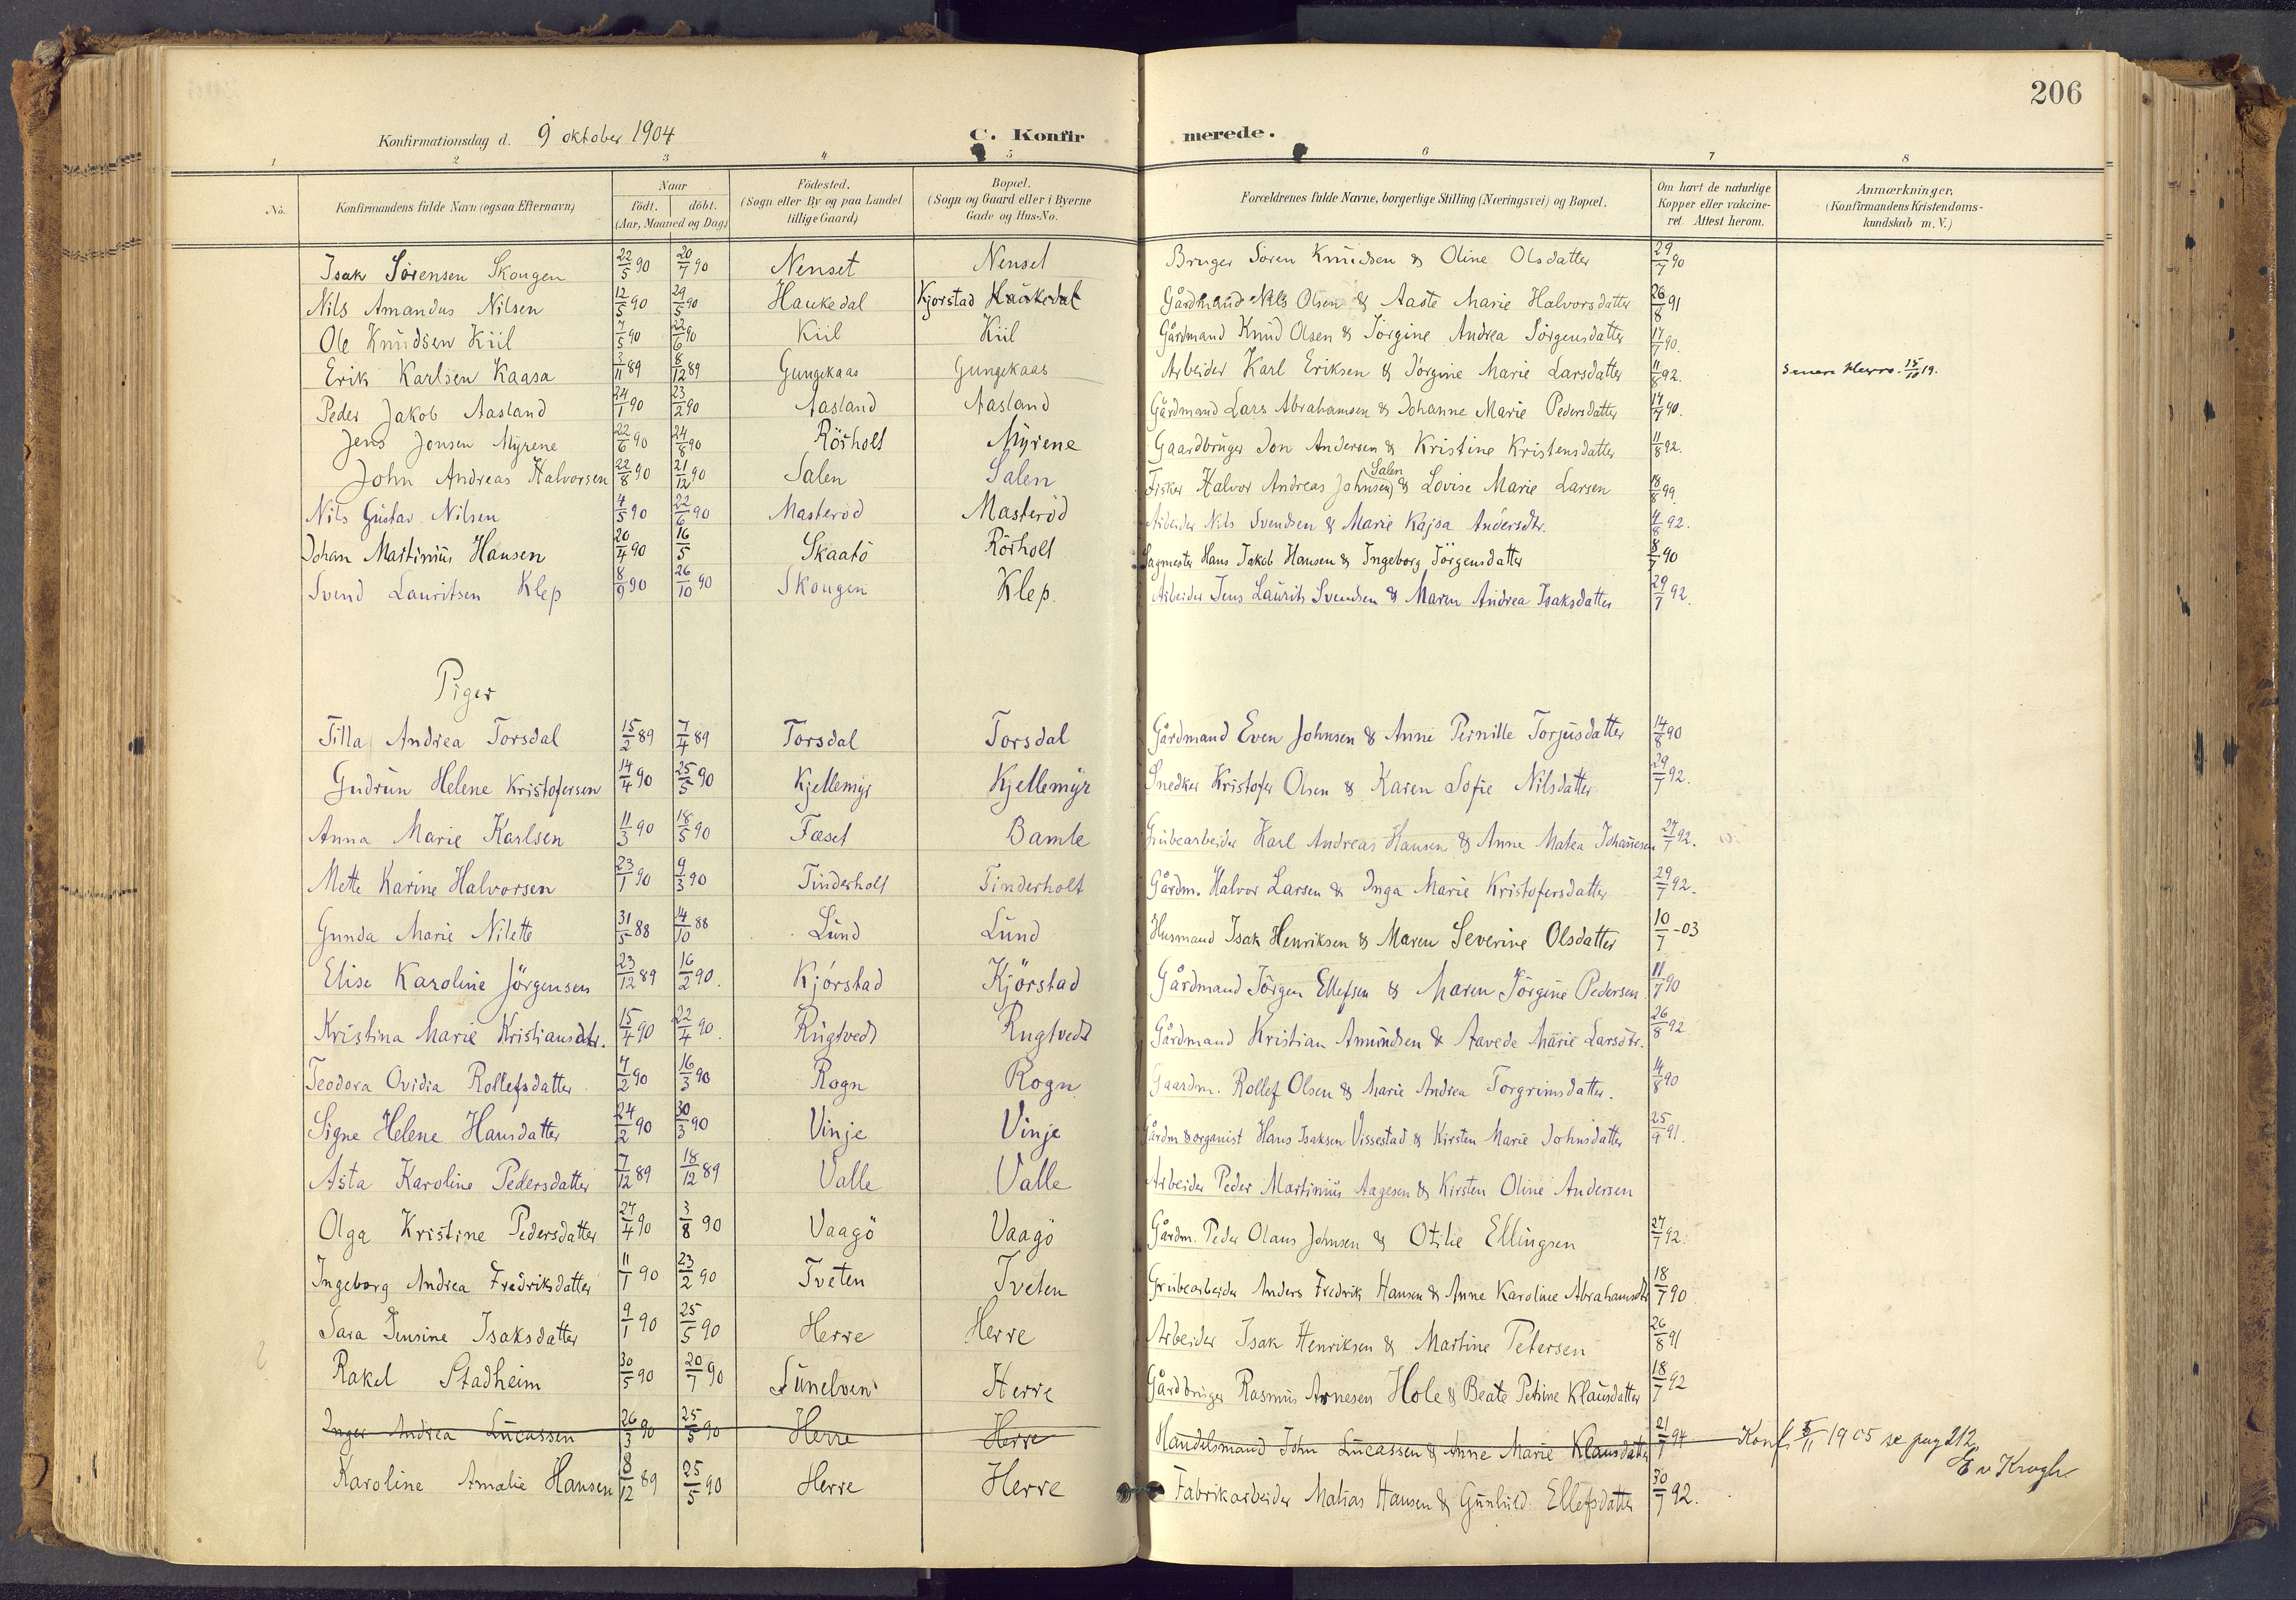 206
Konfirmationsdag d. 9 oktober 1904 C. Konfirmerede.
1 2 3 4 5 6 7 8
No. Konfirmandens fulde Navn (ogsaa Efternavn) Naar født. døbt. (Aar, Maaned og Dag) Födested. (Sogn eller By og paa Landet tillige Gaard) Bopæl. (Sogn og Gaard eller i Byerne Gade og Hus-No. Forældrenes fulde Navne, borgerlige Stilling (Næringsvei) og Bopæl. Om havt de naturlige Kopper eller vakcineret. Attest herom. Anmærkninger. (Konfirmandens Kristendomskundskab m. V.)
Isak Sörensen Skougen 22/5 90 20/7 90 Nenset Nenset Bruger Sören Knudsen & Oline Olsdatter 29/7 90
Nils Amandus Nilsen 12/5 90 29/5 90 Haukedal Kjorstad Haukedal Gårdmand Nils Olsen & Aaste Marie Halvorsdatter 26/8 91
Ole Knudsen Kiil 7/5 90 22/6 90 Kiil Kiil Gårdmand Knud Olsen & Jörgine Andrea Jörgensdatter 17/7 90.
Erik Karlsen Kaasa 3/11 89 8/12 89 Gungekaas Gungekaas Arbeider Karl Eriksen & Jörgine Marie Larsdatter 11/8 92. 15/10 19.
Peder Jakob Aasland 24/1 90 23/2 90 Aasland Aasland Gårdmand Lars Abrahamsen & Johanne Marie Pedersdatter 17/7 90.
Jens Jonsen Myrene 22/6 90 24/8 90 Rörholt Myrene Gaardbruger Jon Andersen & Kristine Kristensdatter 11/8 92.
John Andreas Halvorsen 22/8 90 21/12 90 Salen Salen Fisker Halvor Andreas Johnsen Salen & Lovise Marie Larsen 18/8 99
Nils Gustav Nilsen 4/5 90 22/6 90 Masteröd Masteröd Arbeider Nils Svendsen & Marie Kajsa Andersdtr. 4/8 92.
Johan Martinius Hansen 20/4 90 16/5 Skaatö Rörholt Sagmester Hans Jakob Hansen & Ingeborg Jörgensdatter 8/7 90
Svend Lauritsen Klep 8/9 90 26/10 90 Skougen Klep. Arbeider Jens Laurits Svendsen & Maren Andrea Isaksdatter 29/7 92.
Piger
Tilla Andrea Torsdal 15/2 89 7/4 89 Torsdal Torsdal Gårdmand Even Johnsen & Anne Pernille Torjusdatter 14/8 90
Gudrun Helene Kristofersen 14/4 90 25/5 90 Kjellemyr Kjellemyr Snedker Kristofer Olsen & Karen Sofie Nilsdatter 29/7 92.
Anna Marie Karlsen 11/3 90 18/5 90 Fæset Bamle Grubearbeider Karl Andreas Hansen & Anne Matea Johannesen 27/7 92.
Mette Karine Halvorsen 23/1 90 9/3 90 Tinderholt Tinderholt Gårdm. Halvor Larsen & Inga Marie Kristofersdatter 29/7 92.
Gunda Marie Nilette 31/5 88 14/10 88 Lund Lund Husmand Isak Henriksen & Maren Severine Olsdatter 10/7 -03
Elise Karoline Jörgensen 23/12 89 16/2 90. Kjörstad Kjörstad Gårdmand Jörgen Ellefsen & Maren Jörgine Pedersen 11/7 90
Kristina Marie Kristiansdtr. 15/4 90 22/4 90. Rugtvedt Rugtvedt Gårdmand Kristian Amundsen & Aavede Marie Larsdtr. 26/8 92
Teodora Ovidia Rollefsdatter 4/2 90 16/3 90 Rogn Rogn Gaardm. Rollef Olsen & Marie Andrea Torgrimsdatter. 14/8 90
Signe Helene Hansdatter 24/2 90 30/3 90 Vinje Vinje Gårdm & organist Hans Isaksen Vissestad & Kirsten Marie Johnsdatter 25/9 91.
Asta Karoline Pedersdatter 7/12 89 18/12 89 Valle Valle Arbeider Peder Martinius Aagesen & Kirsten Oline Andersen
Olga Kristine Pedersdatter 27/4 90 3/8 90 Vaagö Vaagö Gårdm. Peder Olaus Johnsen & Otilie Ellingsen 27/7 92.
Ingeborg Andrea Fredriksdatter 11/1 90 23/2 90 Tveten Tveten Grubearbeider Anders Fredrik Hansen & Anne Karoline Abrahamsdtr 18/7 90
Sara Jensine Isaksdatter 9/1 90 25/5 90 Herre Herre Arbeider Isak Henriksen & Martine Petersen 26/8 91
Rakel Stadheim 30/5 90 20/7 90 Sunelven Herre Gårdbruger Rasmus Arnesen Hole & Beate Petrine Klausdatter 18/7 92
Inger Andrea Lucassen 26/3 90 25/5 90 Herre Herre Handelsmand John Lucassen & Anne Marie Klausdatter 21/7 94 Konf. 5/11 1905 se pag 212
E v Krogh
Karoline Amalie Hansen 8/12 89 25/5 90 Herre Herre Fabrikarbeider Matias Hansen & Gunhild Ellefsdatter 30/7 92.